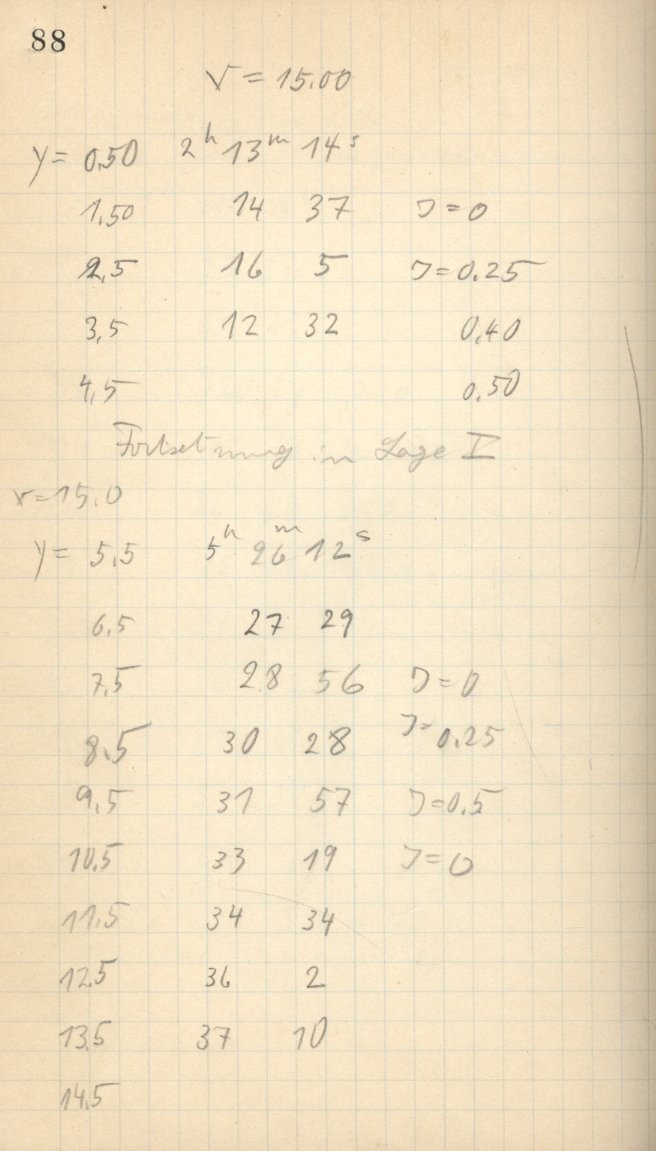 88
v = 15.00
y = 0,50 2h 13m 14s
1,50 14 37 J = 0
2,5 16 5 J = 0.25
3,5 12 32 0,40
4,5 0,50
Fortsetzung in Lage I
v = 15,0
y = 5,5 5h 26m 12s
6,5 27 29
7,5 28 56 J = 0
8,5 30 28 J = 0,25
9,5 31 57 J = 0.5
10,5 33 19 J = 0
11,5 34 34
12,5 36 2
13,5 37 10
14,5